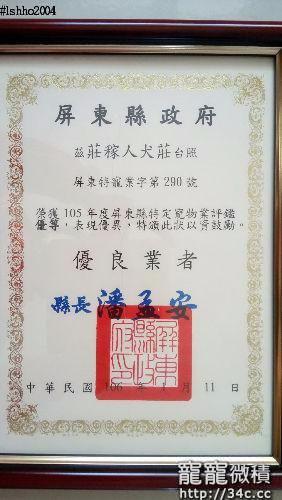 #lshho2004
屏東縣政府
茲莊稼人犬莊台照
屏東特寵業字第290號
榮獲105年度屏東縣特定寵物業評鑑
優等，表現優異，特頒此狀以資鼓勵。
優良業者
縣長潘孟安
屏東縣政府印
中華民國106年1月11日
龍龍微積
http://34c.cc